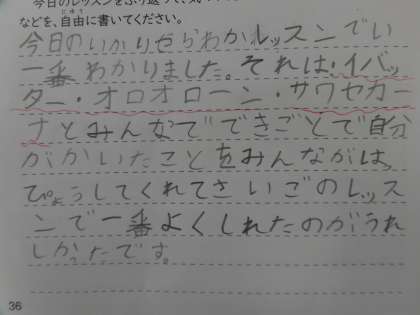 今日のレッスンをふり返って、気
などを、自由に書いてください。
今日のいかりせらわかレッスンでい
一番わかりました。それは、イバッ
ター・オロオローン・サワセカー
ナとみんなでできごとで自分
がかいたことをみんながはっ
ぴょうしてくれてさいごのレッス
ンで一番よくしれたのがうれ
しかったです。
36